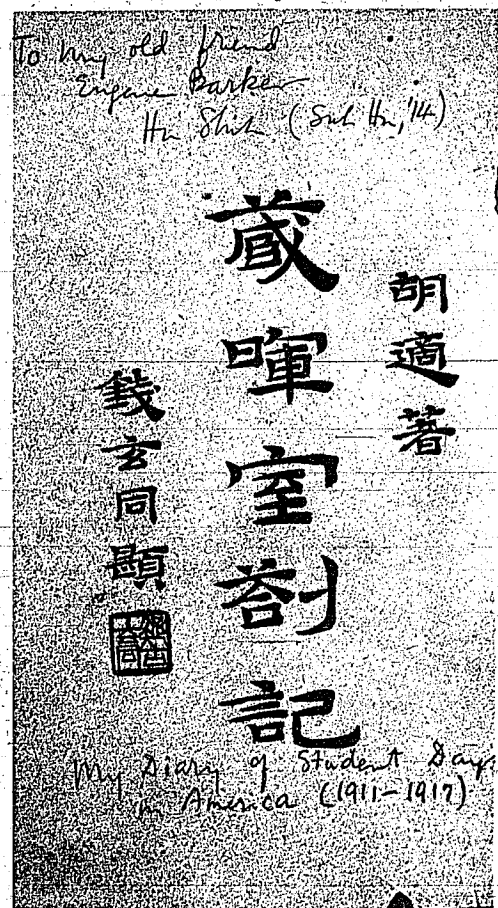 To my old friend
Eugene Barker
Hu Shih (Suh Hu, '14)
胡適著
藏暉室劄記
錢玄同題
My Diary of Student Days
in America (1911-1917)